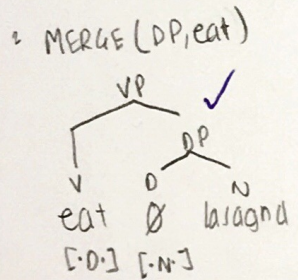 2 MERGE(DP,eat)
VP
DP
V D N
eat Ø lasagna
[·D·] [·N·]